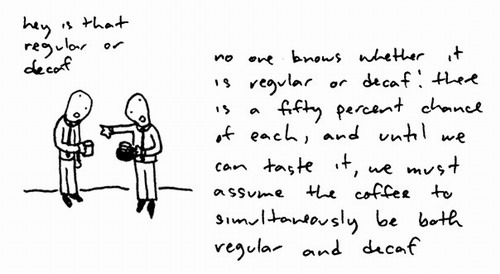 hey is that
regular or
decaf
no one knows whether it
is regular or decaf! there
is a fifty percent chance
of each, and until we
can taste it, we must
assume the coffee to
simultaneously be both
regular and decaf